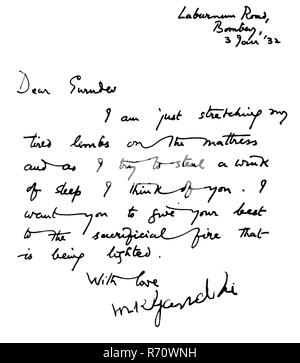 Laburnum Road,
Bombay,
3 Jan '32
Dear Gurudev
I am just stretching my
tired limbs on the mattress
and as I try to steal a wink
of sleep I think of you. I
want you to give your best
to the sacrificial fire that
is being lighted.
With love
MKGandhi
alamy
R70WNH